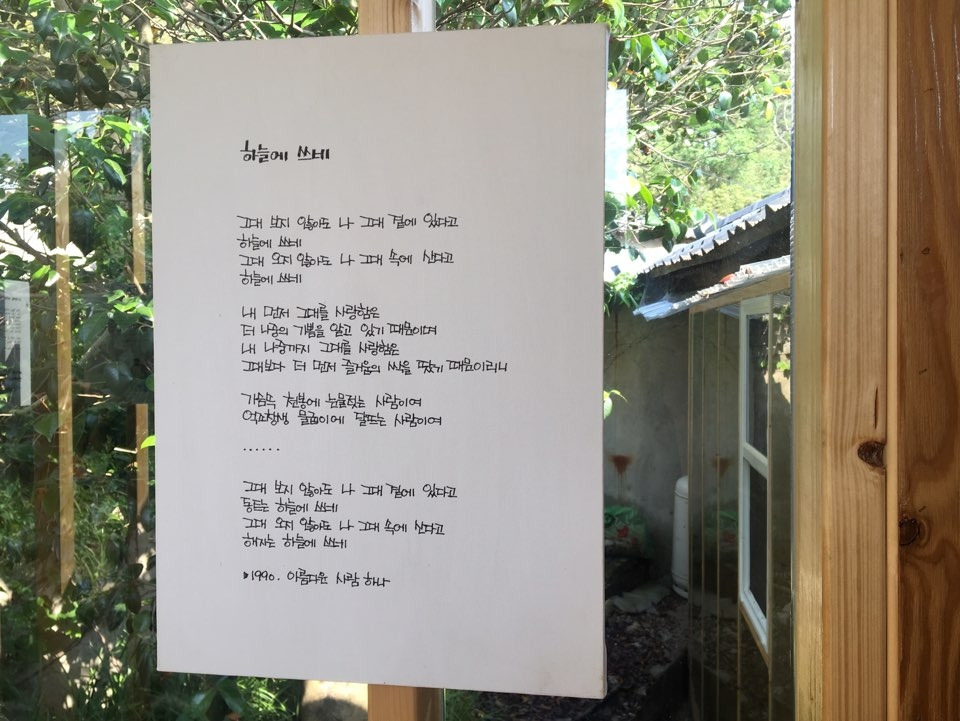 하늘에 쓰네
그대 보지 않아도 나 그대 곁에 있다고
하늘에 쓰네
그대 오지 않아도 나 그대 속에 산다고
하늘에 쓰네
내 먼저 그대를 사랑함은
더 나중의 기쁨을 알고 있기 때문이며
내 나중까지 그대를 사랑함은
그대보다 더 먼저 즐거움의 싹을 땄기 때문이리니
가슴속 천봉에 눈물젖는 사람이여
억조창생 물굽이에 달뜨는 사람이여
......
그대 보지 않아도 나 그대 곁에 있다고
동트는 하늘에 쓰네
그대 오지 않아도 나 그대 속에 산다고
해지는 하늘에 쓰네
1990. 아름다운 사람 하나